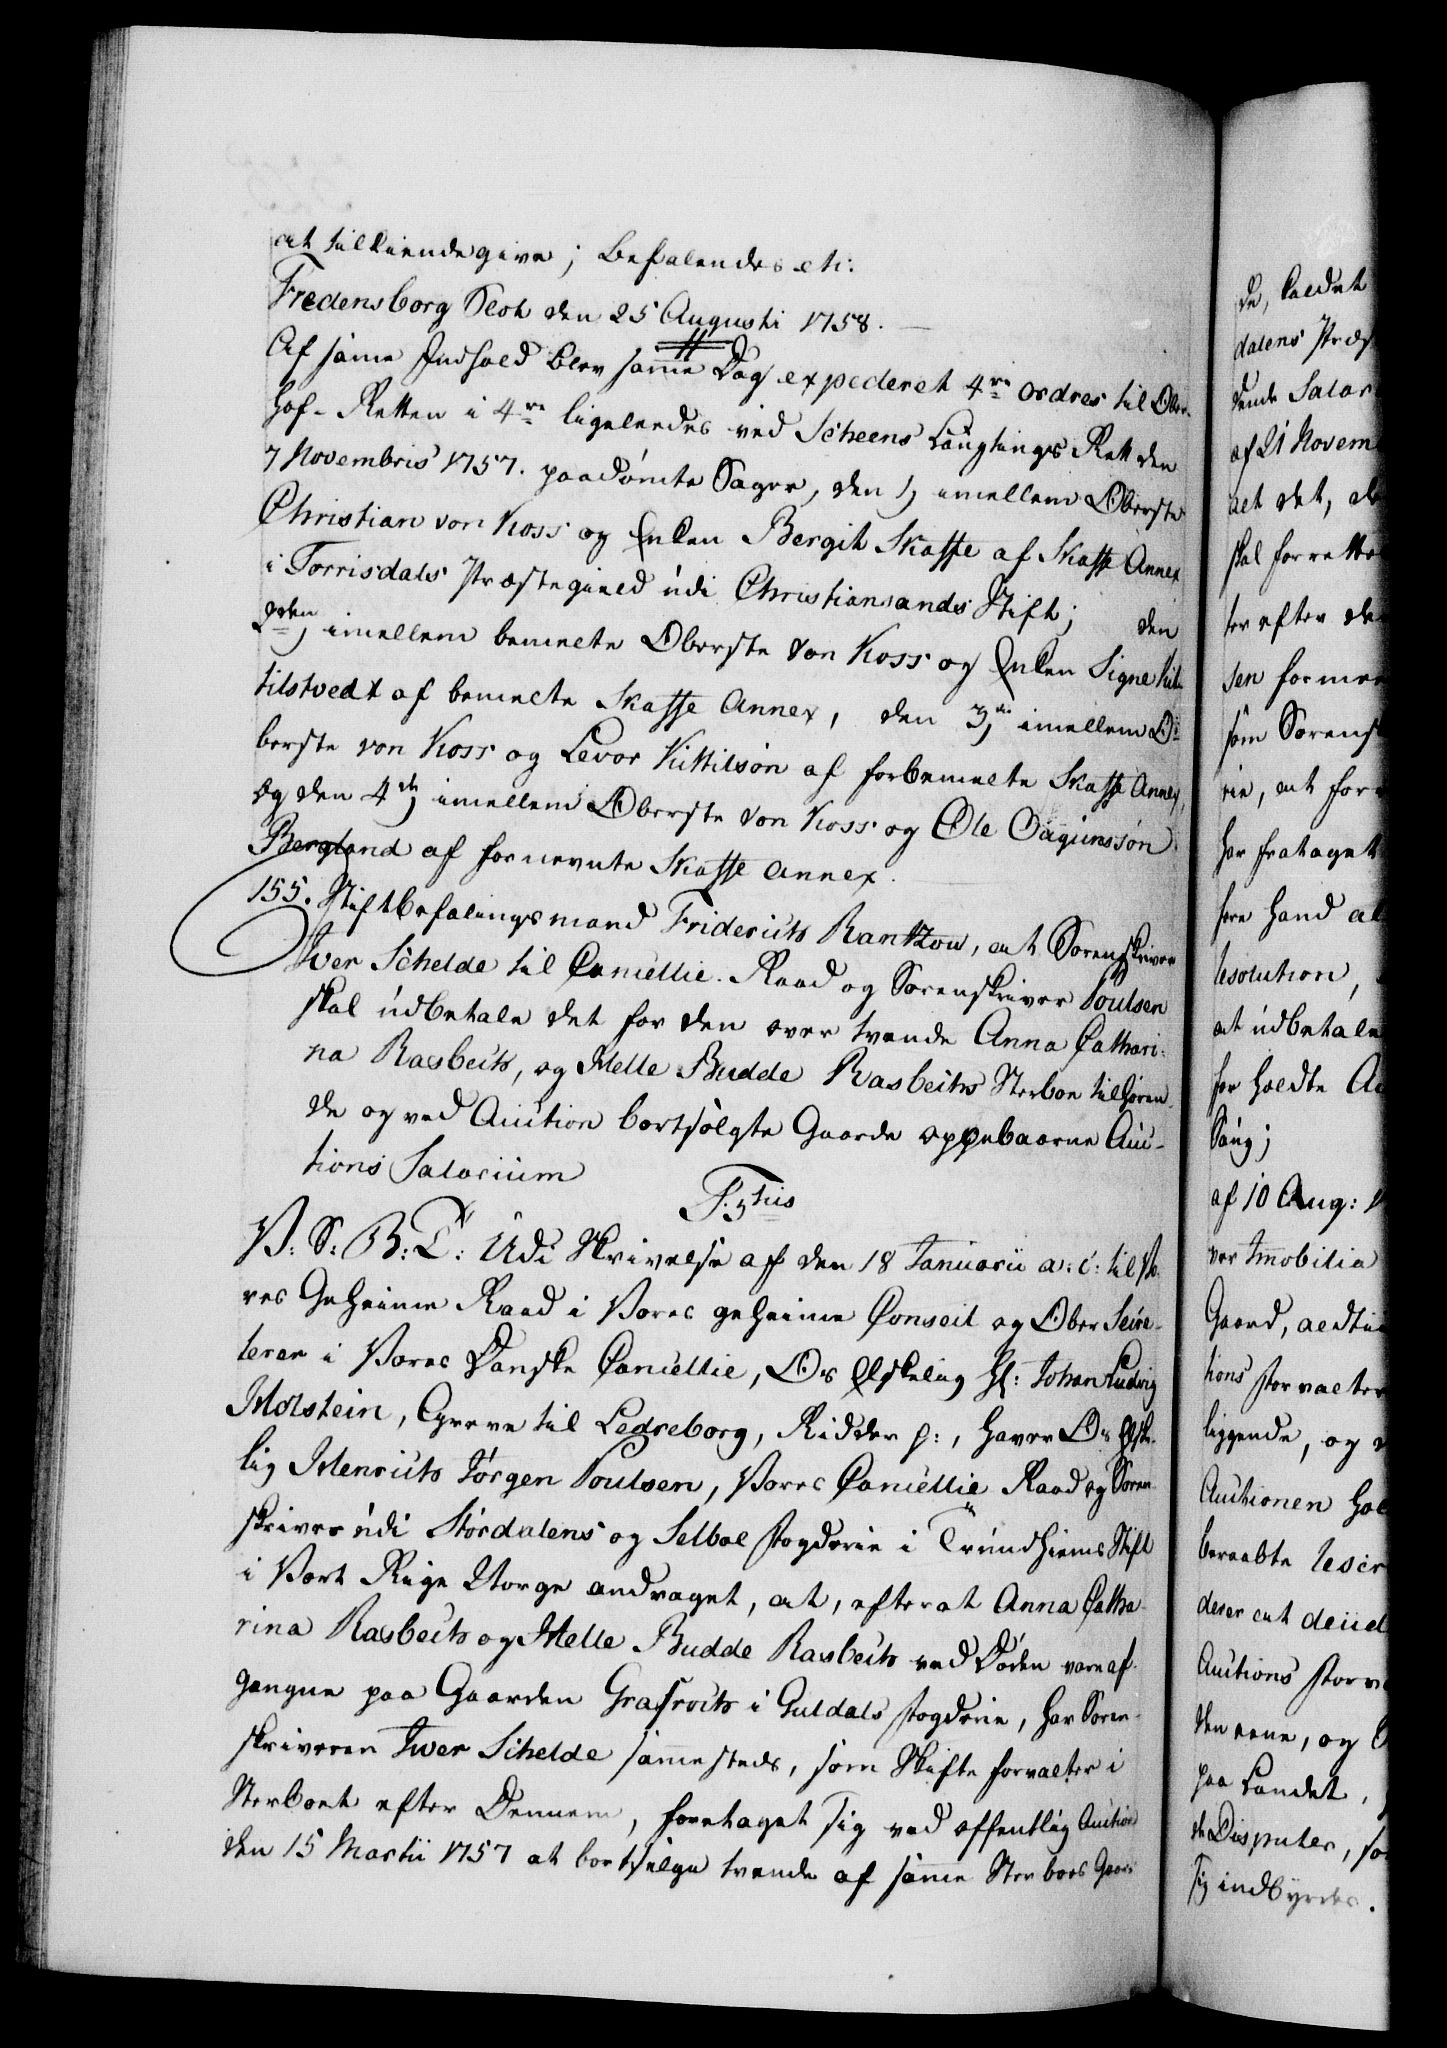 at tilkiende give; Befalendes etc:
Fredensborg Slot den 25 Augusti 1758.
Af samme Indhold blev samme Dag expederet 4re ordres til Ober-
Hof-Retten i 4re ligeleedes ved Scheens Laugtings Rett den
7 Novembris 1757. paadømte Sager, den 1) imellem Oberste
Christian von Koss og Enken Bergit Skaffe af Skaffe Annex
i Torrisdals Præstegield udi Christiansands Stift; den
2den) imellem bemelte Oberste von Koss og Enken Signe
tilstvedt af bemelte Skaffe Annex, den 3die imellem O-
berste von Koss og Levor Kittilsøn af forbemelte Skaffe Annex,
og den 4de) imellem Oberste von Koss og Ole Aagunssøn
Bergland af fornevnte Skaffe Annex.
155. Stiftbefalingsmand Fridericts Rantzou, at Sorenskriver
Iver Schelde til Cancellie-Raad og Sorenskriver Poulsen
skal udbetale det for den over tvende Anna Cathari-
na Rasbechs, og Melle Budde Rasbechs Sterboe tilhøren-
de og ved Auction bortsolgte Gaarde oppebaarne Auc-
tions Salarium
F. 5tus
V: S: B: T: Udi Skrivelse af den 18 Januarii a: c: til Vo-
res Geheime Raad i Vores geheime Conseil og Ober Secre-
terer i Vores Danske Cancellie, Os Elskelig Hr: Johan Ludvig
Holstein, Greve til Ledreborg, Ridder p:, haver Os Elske-
lig Henrich Jørgen Poulsen, Vores Cancellie Raad og Soren-
skriver udi Størdalens og Selboe Fogderie i Trundhiems Stift
i Vort Rige Norge andraget, at, efterat Anna Catha-
rina Rasbech og Helle Budde Rasbech ved Døden vare af-
gangne paa Gaarden Grafroch i Guldals Fogderie, har Soren-
skriveren Iver Schelde sammesteds, som Skifte forvalter i
Sterboet efter Dennem, foretaget sig ved offentlig Auction
den 15 Martii 1757 at bortsælge tvende af samme Sterboes Gaar-
de, kaldet
dalens Præs
dende Salar
af 21 Novem
at det, al
skal forrette
ter efter de
sen forme
som Sorens
rie, at for
har frataget
fore Hand al
Resolution,
at udbetale
for holdte Au
Saug;
af 10 Aug:
ver Immobilia
Gaard,
tions Forvalter
liggende, og
Auctionen hol
beraabte
Auctions Forv
den eene, og
paa Landet,
de Disputer, so
sig indbyrdes.